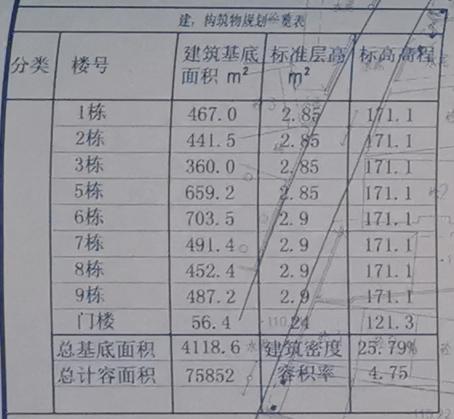 建，构筑物规划一览表
分类 楼号 建筑基底面积 m² 标准层高 m² 标高高程
1栋 467.0 2.85 171.1
2栋 441.5 2.85 171.1
3栋 360.0 2.85 171.1
5栋 659.2 2.85 171.1
6栋 703.5 2.9 171.1
7栋 491.4 2.9 171.1
8栋 452.4 2.9 171.1
9栋 487.2 2.9 171.1
门楼 56.4 24 121.3
总基底面积 4118.6 建筑密度 25.79%
总计容面积 75852 容积率 4.75